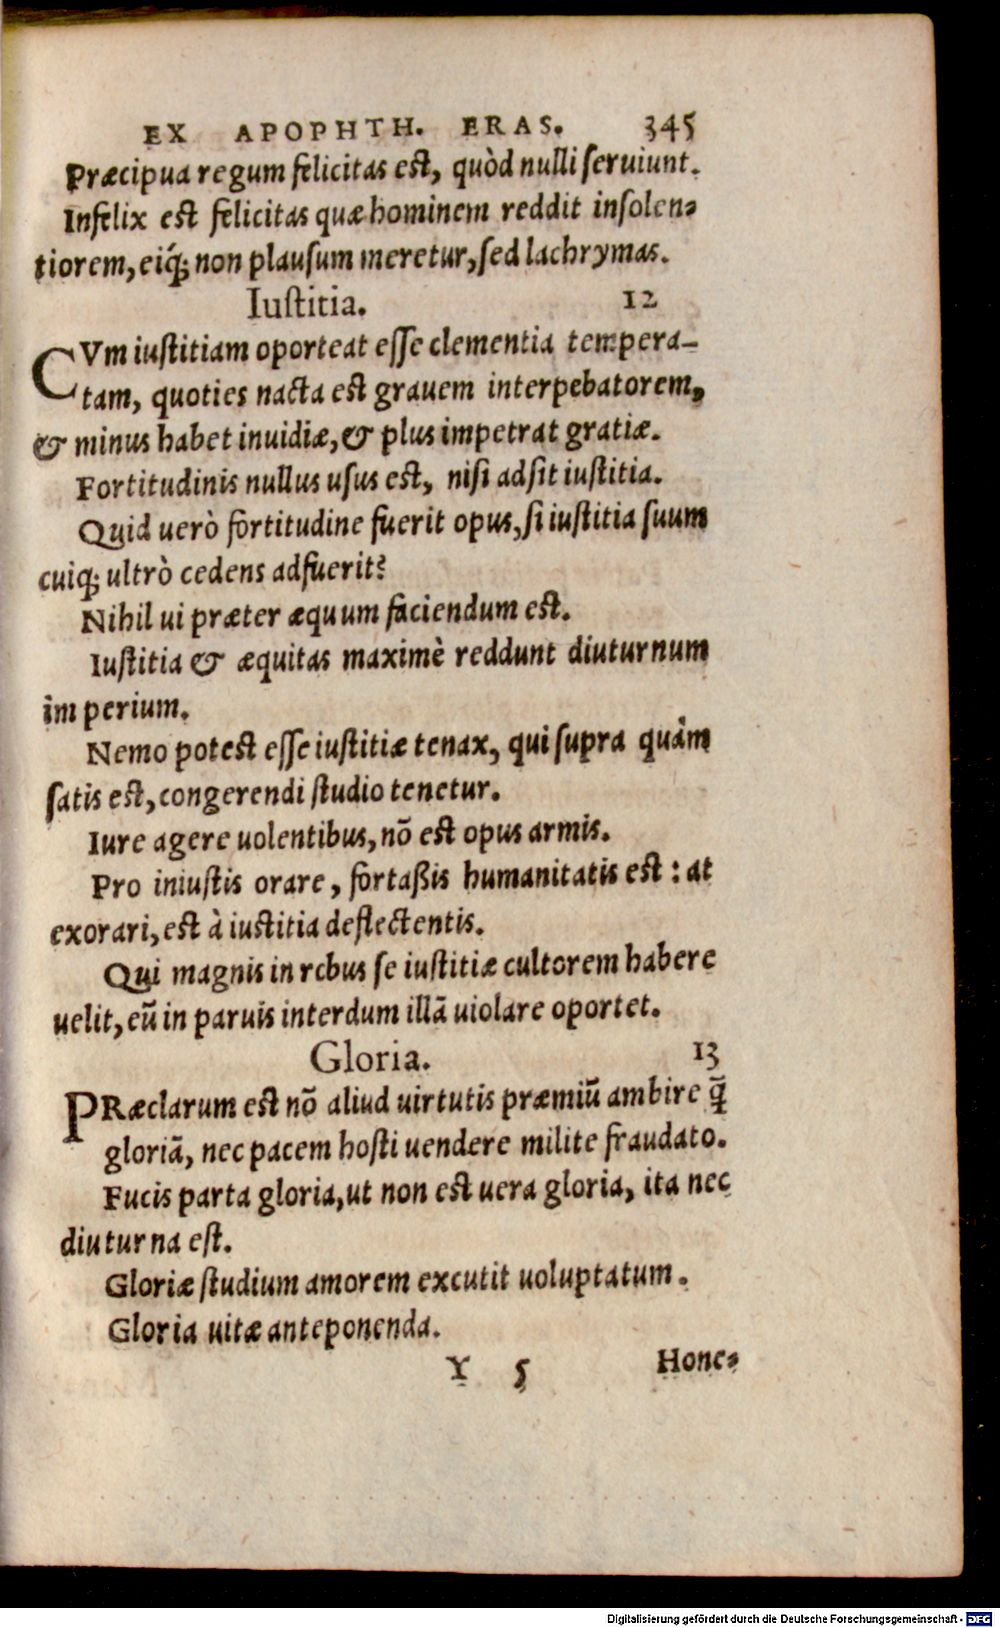 EX APOPHTH. ERAS. 345
Præcipua regum felicitas est, quòd nulli seruiunt.
Infelix est felicitas quæ hominem reddit insolen⸗
tiorem, eiq́; non plausum meretur, sed lachrymas.
Iustitia. 12
CVm iustitiam oporteat esse clementia tempera-
tam, quoties nacta est grauem interpebatorem,
& minus habet inuidiæ, & plus impetrat gratiæ.
Fortitudinis nullus usus est, nisi adsit iustitia.
Quid uerò fortitudine fuerit opus, si iustitia suum
cuiq; ultrò cedens adfuerit?
Nihil ui præter æquum faciendum est.
Iustitia & æquitas maximè reddunt diuturnum
imperium.
Nemo potest esse iustitiæ tenax, qui supra quàm
satis est, congerendi studio tenetur.
Iure agere uolentibus, nō est opus armis.
Pro iniustis orare, fortaßis humanitatis est: at
exorari, est à iustitia deflectentis.
Qui magnis in rebus se iustitiæ cultorem habere
uelit, eū in paruis interdum illā uiolare oportet.
Gloria. 13
PRæclarum est nō aliud uirtutis præmiū ambire q̄̃
gloriā, nec pacem hosti uendere milite fraudato.
Fucis parta gloria, ut non est uera gloria, ita nec
diuturna est.
Gloriæ studium amorem excutit uoluptatum.
Gloria uitæ anteponenda.
Y 5 Hone⸗
Digitalisierung gefördert durch die Deutsche Forschungsgemeinschaft - DFG